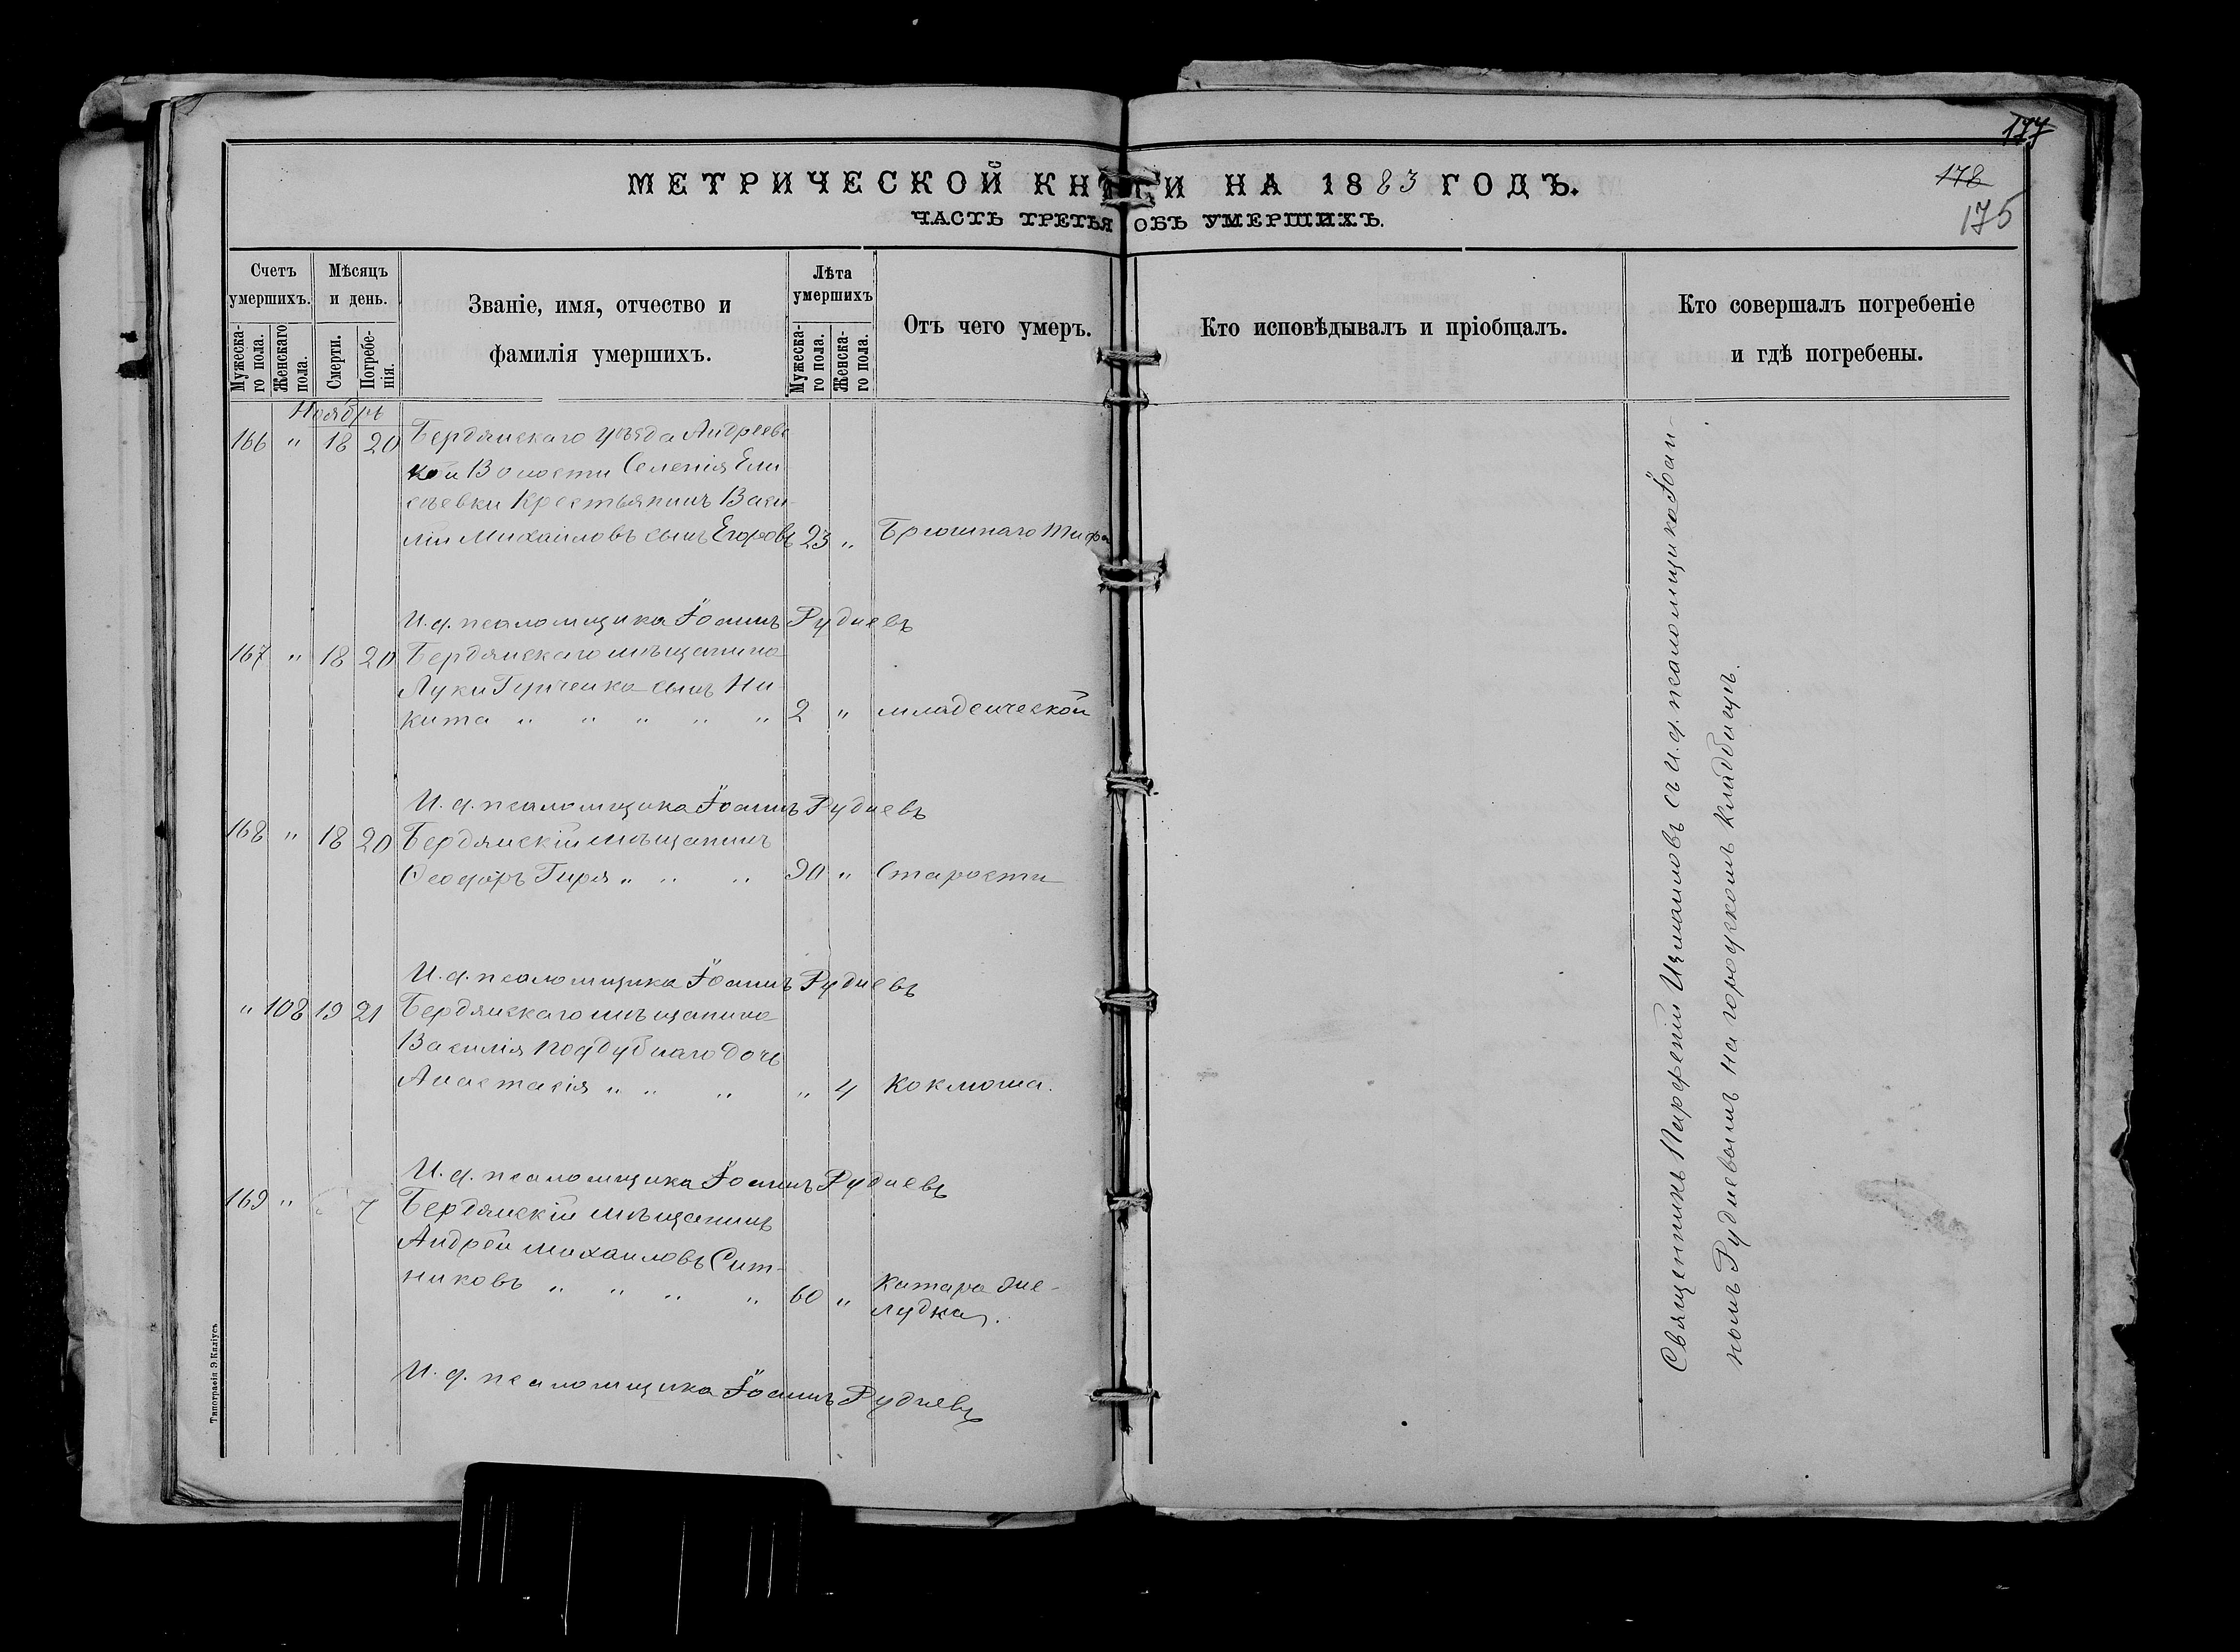 177
178
175
МЕТРИЧЕСКОЙ КНИГИ НА 1883 ГОДЪ.
ЧАСТЬ ТРЕТЬЯ ОБЪ УМЕРШИХЪ.
Счетъ умершихъ.
Мужескаго пола.
Женскаго пола.
Мѣсяцъ и день.
Смерти.
Погребенія.
Званіе, имя, отчество и
фамилія умершихъ.
Лѣта умершихъ
Мужескаго пола.
Женскаго пола.
Отъ чего умеръ.
Кто исповѣдывалъ и пріобщалъ.
Кто совершалъ погребеніе
и гдѣ погребены.
Ноябрь
166 " 18 20 Бердянскаго уѣзда Андреевс
кой Волости Селенія Ели
сѣевки Крестьянинъ Васи-
лій Михайловъ сынъ Егоровъ 23 " Брюшнаго Тифа
И. д. псаломщика Іоаннъ Рудневъ
167 " 18 20 Бердянскаго мѣщанина
Луки Гурченка сынъ Ни-
кита " " " " " 2 " младенческой
И. д. псаломщика Іоаннъ Рудневъ
168 " 18 20 Бердянскій мѣщанинъ
Ѳеодоръ Гиря " " " 90 " Старости
И. д. псаломщика Іоаннъ Рудневъ
" 108 19 21 Бердянскаго мѣщанина
Василія Поддубнаго дочь
Анастасія " " " " 4 Коклюша.
И. д. псаломщика Іоаннъ Рудневъ
169 " 7 Бердянскій мѣщанинъ
Андрей Михаиловъ Сит-
никовъ " " " " 60 " Катара же-
лудка.
И. д. псаломщика Іоаннъ Рудневъ
Священникъ Парфеній Измаиловъ съ и. д. псаломщика Іоан-
номъ Рудневымъ на городскомъ кладбищѣ.
Типографія Э. Киліусъ